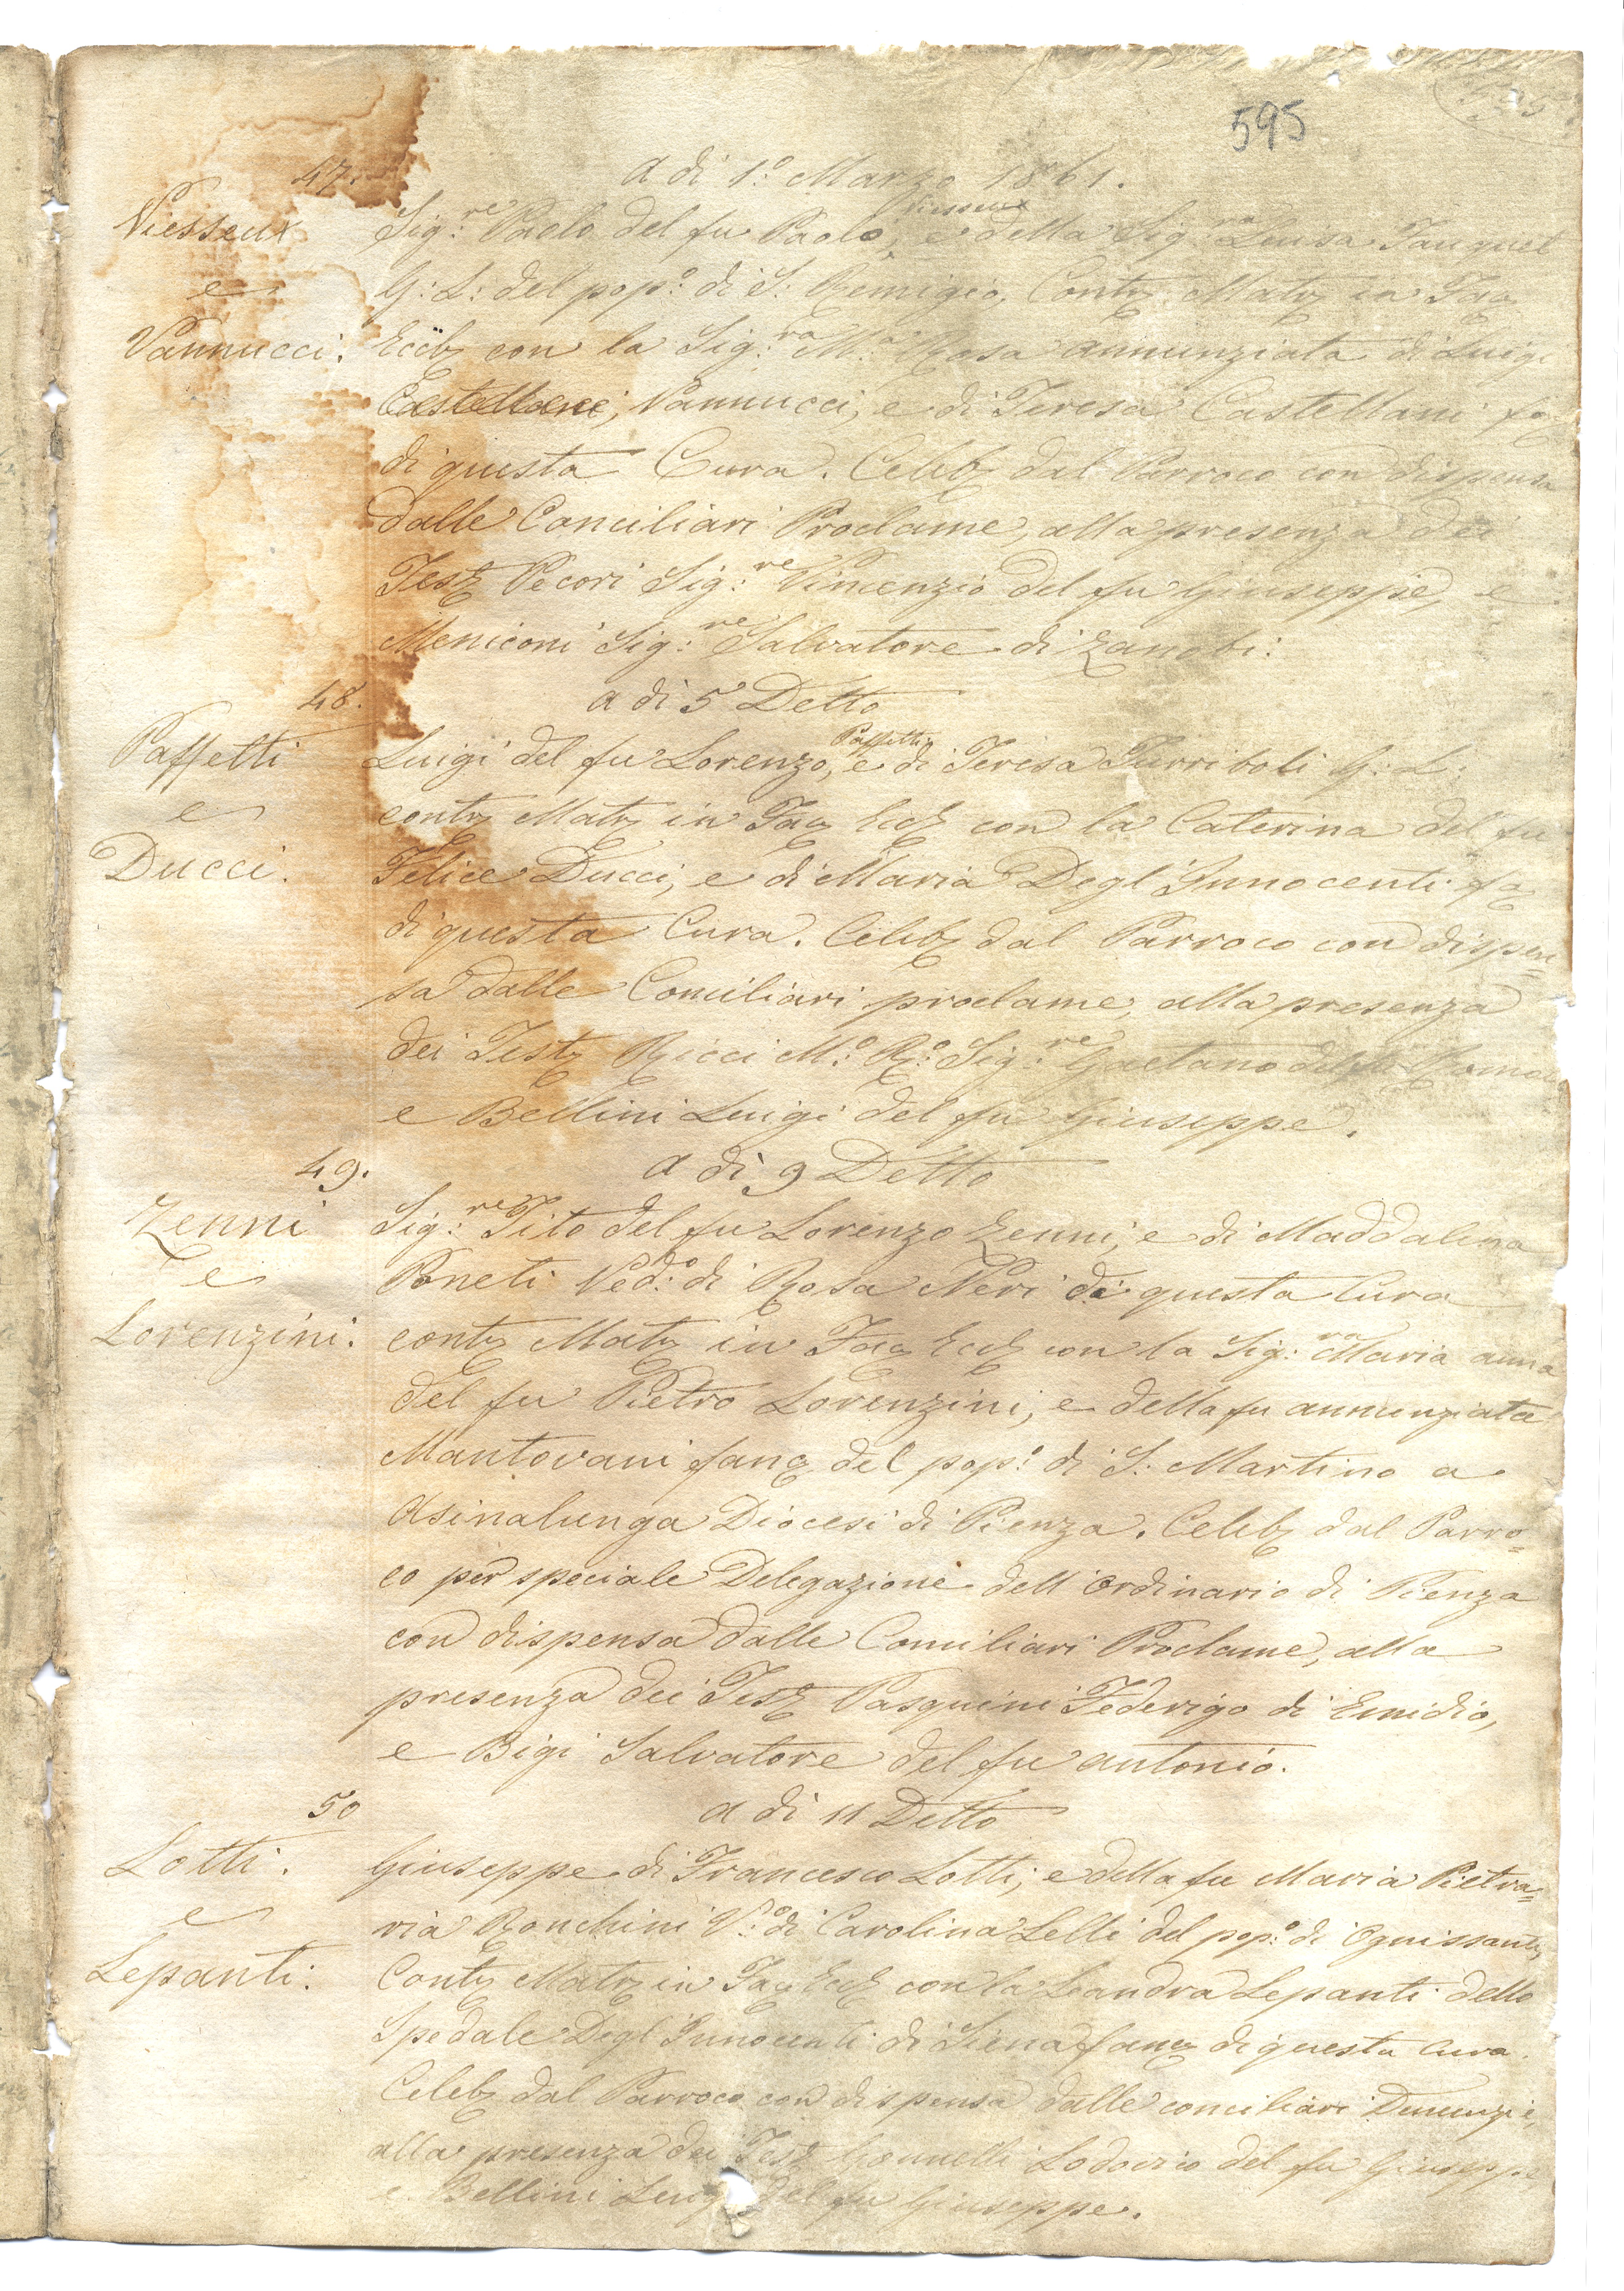 595
47.
a di 1.º Marzo 1861.
Viesseux
e
Vannucci.
Viesseux
Sig:re Paolo del fu Paolo, e della Sig:ra Luisa
G: L: del pop:º di S: Remigio, Cont Mat in Fac
Eccl con la Sig:ra M:a Rosa annunziata di Luigi
Castellani, Vannucci, e di Teresa Castellani fa
di questa Cura. Celeb dal Parroco con dispensa
dalle Conciliari Proclame, alla presenza dei
Test Pecori Sig:re Vincenzio del fu Giuseppe, e
Meniconi Sig:re Salvatore di Zanobi:
48.
a di 5 Detto
Paffetti
e
Ducci.
Paffetti
Luigi del fu Lorenzo, e di Teresa Turriboli G: L:
cont Mat in Fac Eccl con la Caterina del fu
Felice Ducci, e di Maria Degl'Innocenti fa
di questa Cura. Celeb dal Parroco con dispen=
sa dalle Conciliari proclame, alla presenza
dei Test Ricci M:º R:º Sig:re Gaetano del fu
e Bellini Luigi del fu Giuseppe.
49.
a di 9 Detto
Zenni
e
Lorenzini.
Sig:re Tito del fu Lorenzo Zenni, e di Maddalena
Poneti Ved:º di Rosa Neri di questa Cura
cont Mat in Fac Eccl con la Sig:ra Maria anna
del fu Pietro Lorenzini, e della fu annunziata
Mantovani fanc del pop:º di S: Martino a
Asinalunga Diocesi di Pienza. Celeb dal Parro=
co per speciale Delegazione dell'ordinario di Pienza
con dispensa dalle Conciliari Proclame, alla
presenza dei Test Pasquini Federigo di Emidio,
e Bigi Salvatore del fu antonio.
50
a di 11 Detto
Lotti.
e
Lepanti.
Giuseppe di Francesco Lotti, e della fu Maria Pietra=
via Ronchini V:º di Carolina Lelli del pop:º di Ognissanti,
Cont Mat in Fac Eccl con la Leandra Lepanti dello
Spedale Degl'Innocenti di Siena fanc di questa Cura.
Celeb dal Parroco con dispensa dalle conciliari Denunzie,
alla presenza dei Test Gonnelli Lodovico del fu Giuseppe
e Bellini Luigi del fu Giuseppe.